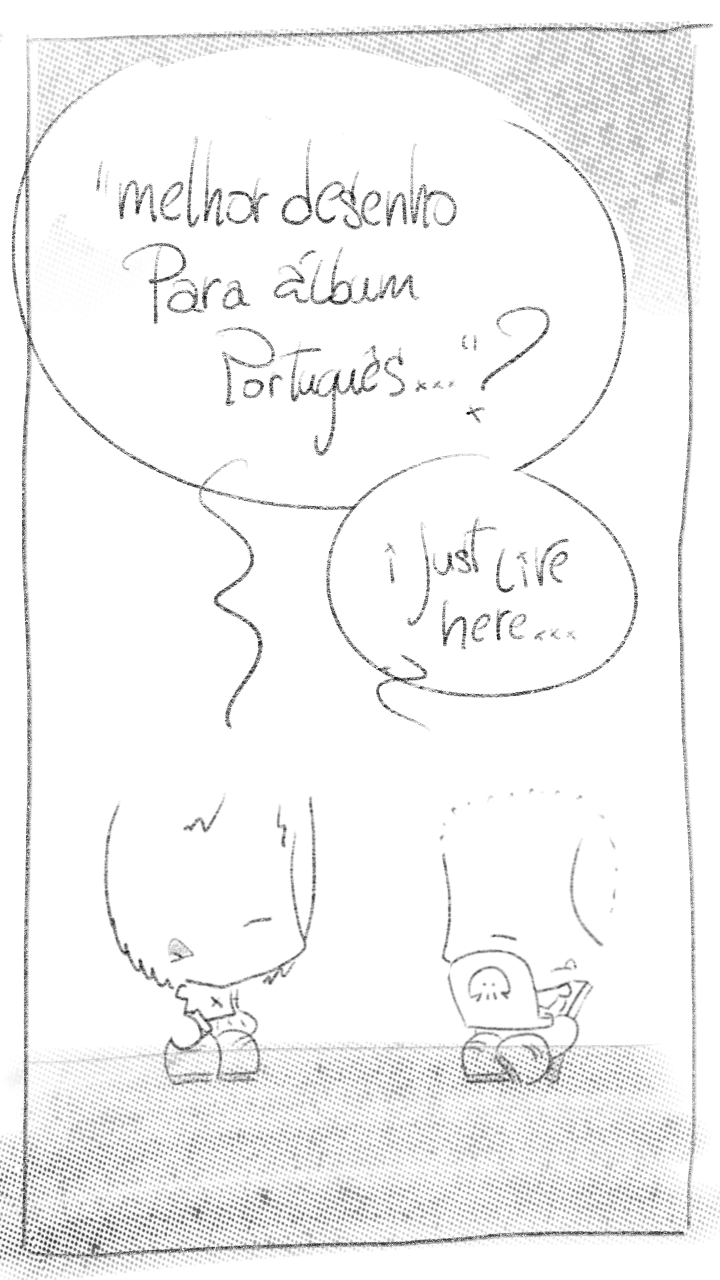 "melhor desenho
Para álbum
Português..."?
i just live
here...